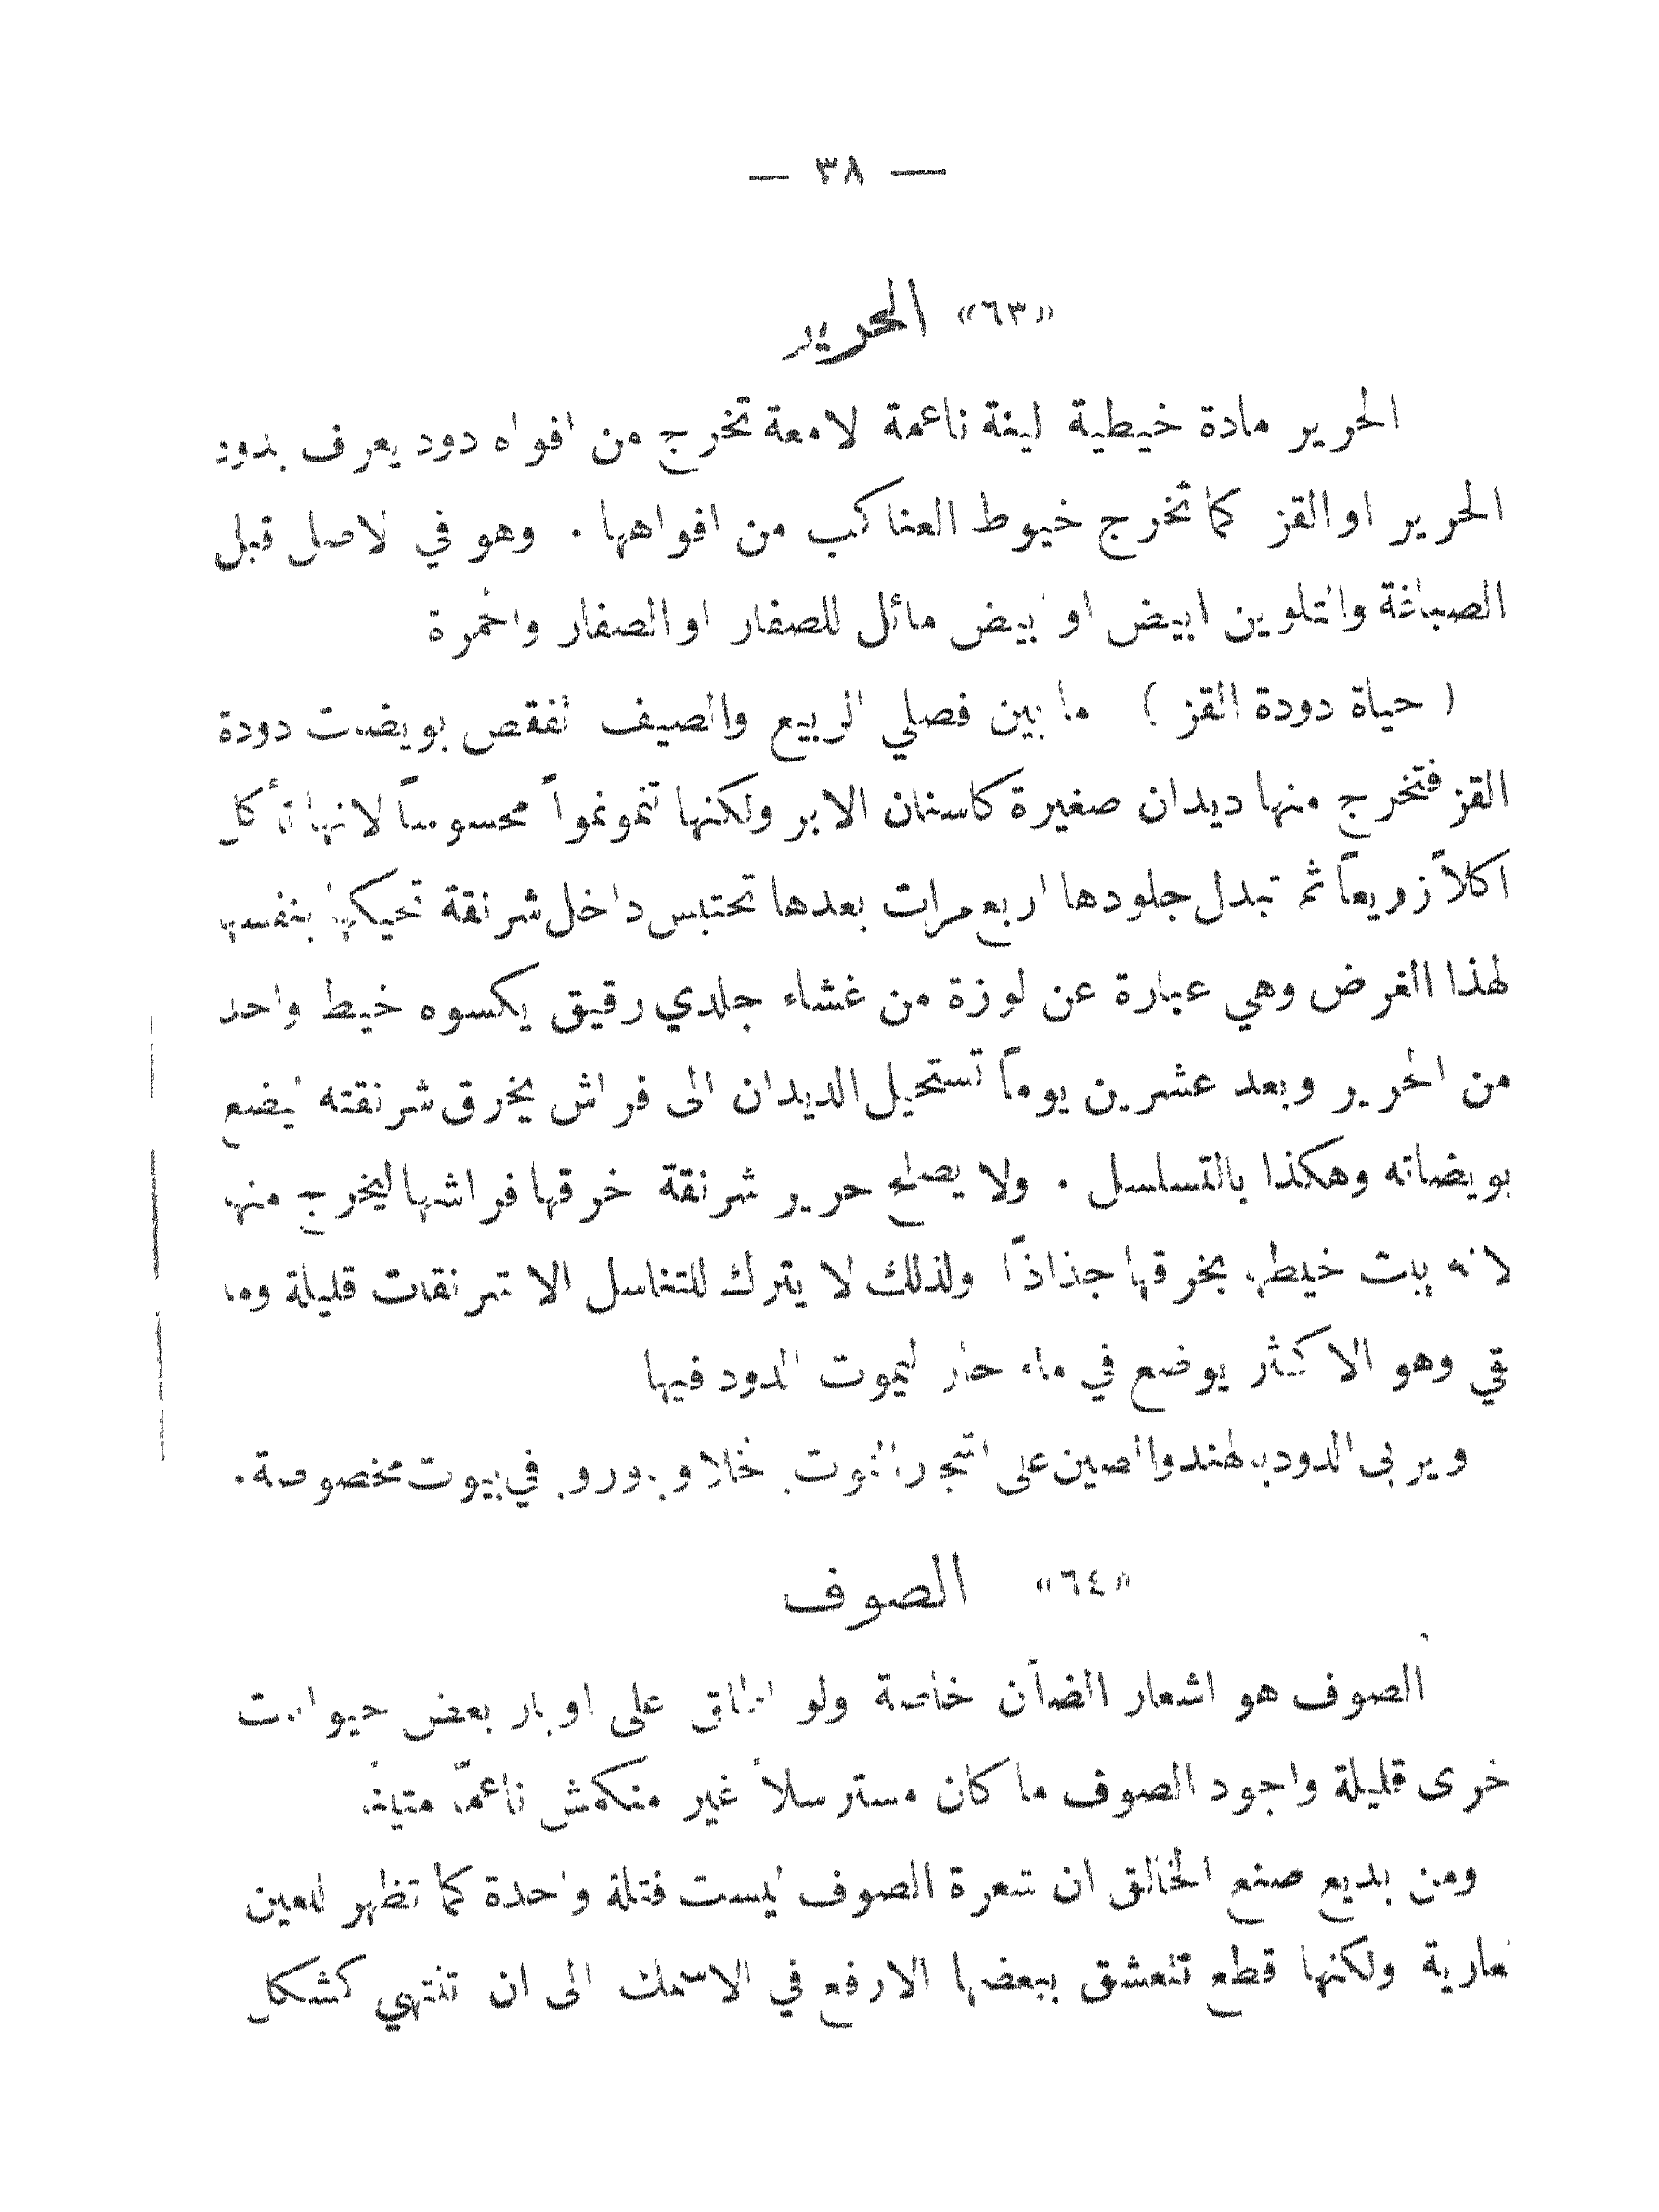 — ٣٨ —
«٦٣» الحرير
الحرير مادة خيطية لينة ناعمة لامعة تخرج من افواه دود يعرف بدود
الحرير او القز كما تخرج خيوط العناكب من افواهها . وهو في الاصل قبل
الصباغة والتلوين ابيض او ابيض مائل للصفار او الصفار والحمرة
( حياة دودة القز ) ما بين فصلي الربيع والصيف تفقص بويضات دودة
القز فتخرج منها ديدان صغيرة كاسنان الابر ولكنها تنمو نمواً محسوساً لانها تأكل
اكلاً زريعاً ثم تبدل جلودها اربع مرات بعدها تحتبس داخل شرنقة تحيكها بنفسها
لهذا الغرض وهي عبارة عن لوزة من غشاء جلدي رقيق يكسوه خيط واحد
من الحرير وبعد عشرين يوماً تستحيل الديدان الى فراش يخرق شرنقته ليضع
بويضاته وهكذا بالتسلسل . ولا يصلح حرير شرنقة خرقها فراشها ليخرج منها
لانه يبت خيطها بخرقها جذاذاً ولذلك لا يترك للتناسل الا شرنقات قليلة وما
بقي وهو الاكثر يوضع في ماء حار ليموت الدود فيها
ويربى الدود بالهند والصين على اشجار التوت في بيوت مخصوصة .
«٦٤» الصوف
الصوف هو اشعار الضأن خاصة ولو اطلق على اوبار بعض حيوانات
اخرى قليلة واجود الصوف ما كان مسترسلاً غير منكمش ناعماً متيناً
ومن بديع صنع الخالق ان شعرة الصوف ليست فتلة واحدة كما تظهر للعين
العارية ولكنها قطع تنعشق ببعضها الارفع في الاسمك الى ان تنتهي كشكل